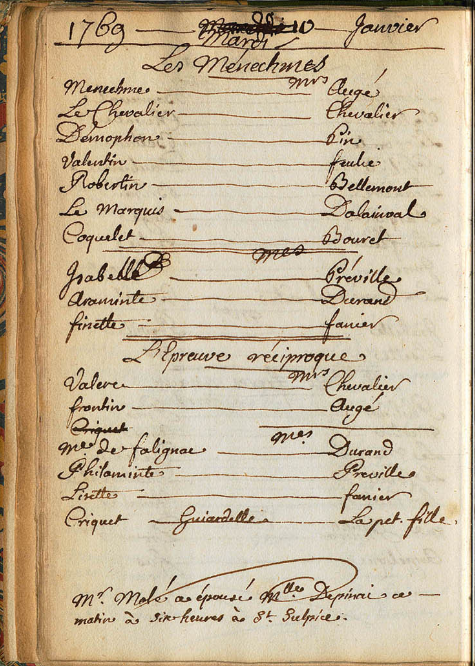 1769 — Mardi 10 Janvier
Les Menechmes
Mrs
Menechme — Augé
Le Chevalier — Chevalier
Démophon — Pin
Valentin — feulie
Robertin — Bellemont
Le Marquis — Dalainval
Coquelet — Bouret
mes
Isabelle — Préville
Araminte — Durand
finette — fanier
L'Epreuve réciproque
Mrs
Valere — Chevalier
frontin — Augé
Criquet
mes
Me de falignac — Durand
Philaminte — Preville
Lisette — fanier
Criquet — Guiardelle — La pet. fille
Mr. Molé a épousé Mlle Depinai ce
matin à six heures à St. Sulpice.